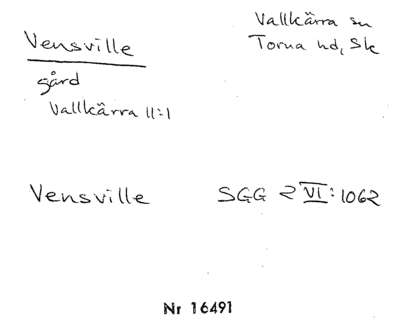 Vensville
Vallkärra sn
Torna hd, Sk
gård
Vallkärra 11:1
Vensville SGG 2 VI: 1062
Nr 16491